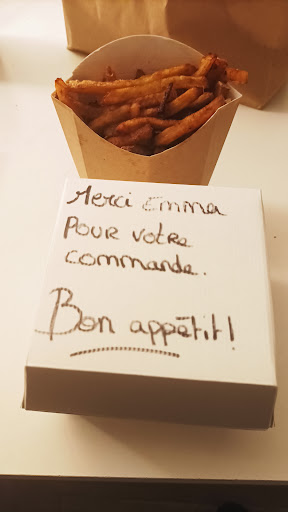 Merci Emma
Pour votre
commande.
Bon appétit!